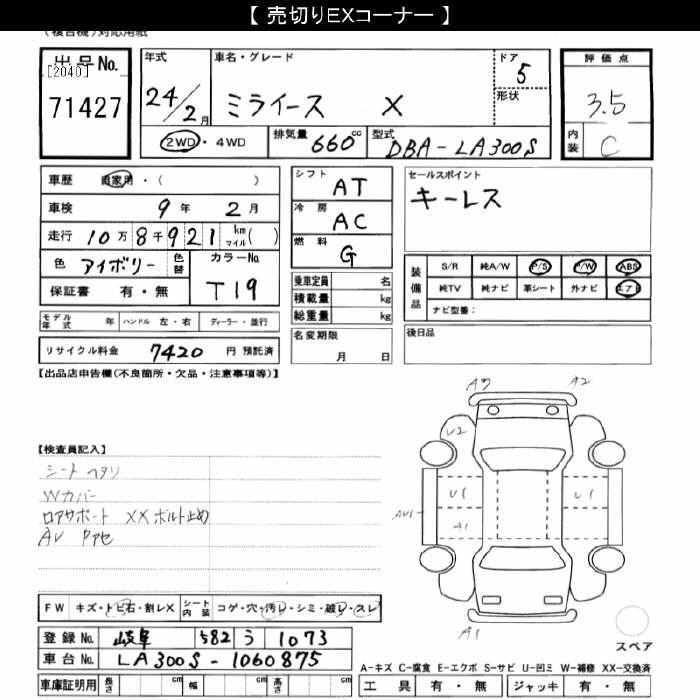 【 売切りEXコーナー 】
(複合機)対応用紙
出品No.
[2040]
71427
年式 24/2月
車名・グレード
ミライース X
ドア 5
形状
評価点
3.5
内装 C
2WD ・ 4WD
排気量 660cc
型式 DBA-LA300S
車歴 自家用 ・ ( )
車検 9年 2月
走行 10万 8千 9 2 1 km マイル ( )
色 アイボリー 色替
カラーNo. T19
保証書 有・無
シフト AT
冷房 AC
燃料 G
セールスポイント
キーレス
乗車定員 名
積載量 kg
総重量 kg
装備品
S/R 純A/W P/S P/W ABS
純TV 純ナビ 革シート 外ナビ エアB
ナビ型番：
モデル年式 年 ハンドル 左・右 ディーラー・並行
名変期限
月 日
後日品
リサイクル料金 7420 円 預託済
【出品店申告欄(不良箇所・欠品・注意事項等)】
A2
U2
U1
U1
AU1
A1
A1
【検査員記入】
シートヘタリ
Wカバー
ロアサポート XXボルト止め
AU Pアセ
FW キズ・トビ石・割レX
シート内装 コゲ・穴・汚レ・シミ・破レ・スレ
登録No. 岐阜 582 う 1073
車台No. LA300S-1060875
車庫証明用 長さ cm 幅 cm 高さ cm
スペア
A-キズ C-腐食 E-エクボ S-サビ U-凹ミ W-補修 XX-交換済
工具 有・無 ジャッキ 有・無